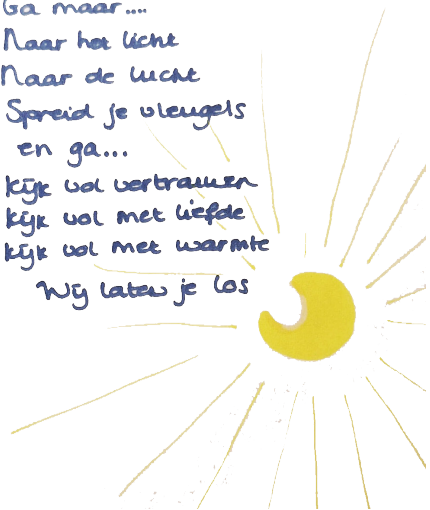 Ga maar....
Naar het licht
Naar de lucht
Spreid je vleugels
en ga...
kijk vol vertrouwen
kijk vol met liefde
kijk vol met warmte
Wij laten je los